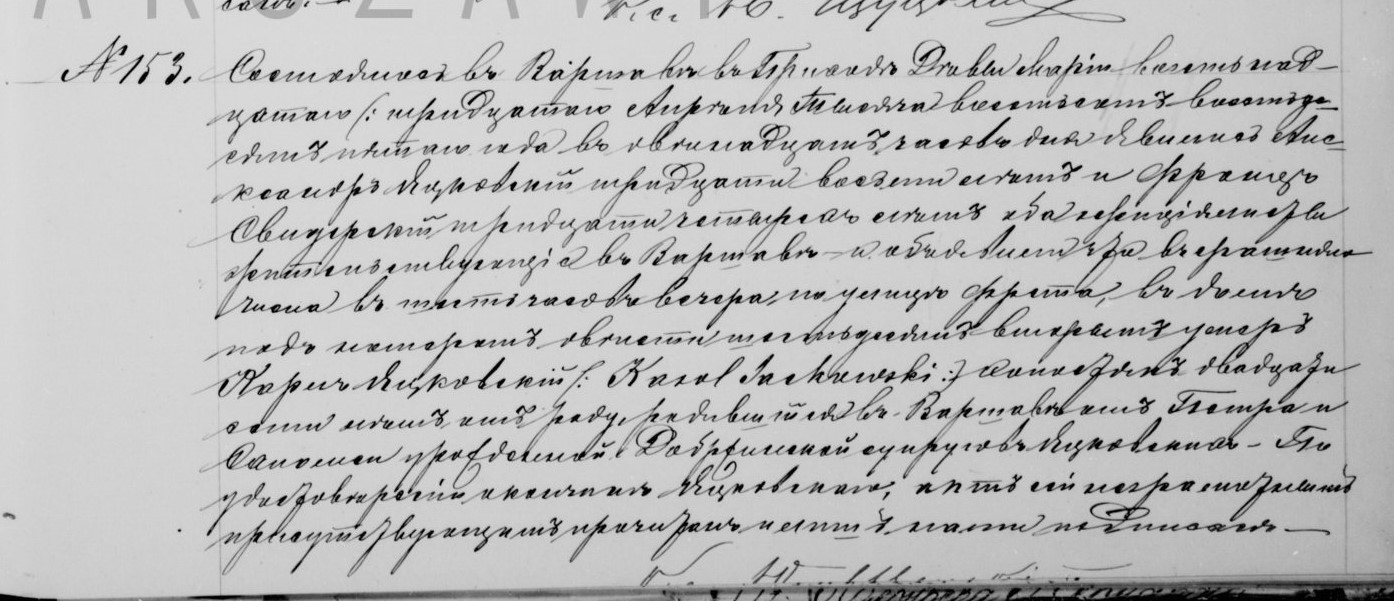 ARSZAW
№ 153. Состоялось въ Варшавѣ въ Приходѣ Дѣвы Маріи восемнад-
цатаго /: тридцатаго Апрѣля тысяча восемьсотъ восемьде-
сятъ пятаго года въ двѣнадцать часовъ дня Явились Але-
ксандръ Яцковскій тридцати восьми лѣтъ и Францъ
Свидерскій тридцати четырехъ лѣтъ оба
жительствующіе въ Варшавѣ и объявили что вчерашняго
числа въ шесть часовъ вечера, по улицѣ Фрета, въ домѣ
подъ номеромъ двѣсти шестьдесятъ вторымъ умеръ
Карлъ Яцковскій /: Karol Jackowski :/ холостякъ двадцати
семи лѣтъ отъ роду, родившійся въ Варшавѣ отъ Петра и
Саломеи урожденной супруговъ Яцковскихъ – По
удостовѣреніи о кончинѣ Яцковскаго, актъ сей неграмотнымъ
присутствующимъ прочитанъ и нами подписанъ —